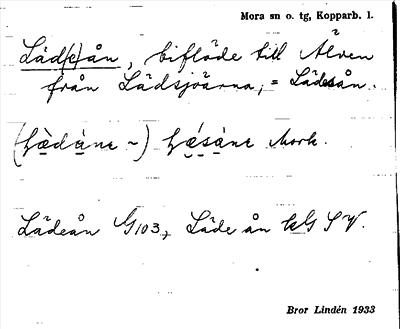 Mora sn o. tg, Kopparb. l.
Läd(e)ån, biflöde till Älven
från Lädsjöarna, = Lädesån.
(læ̀dáne ~) lǽsáne Mork.
Lädeån G103, Läde ån kG SV.
Bror Lindén 1933